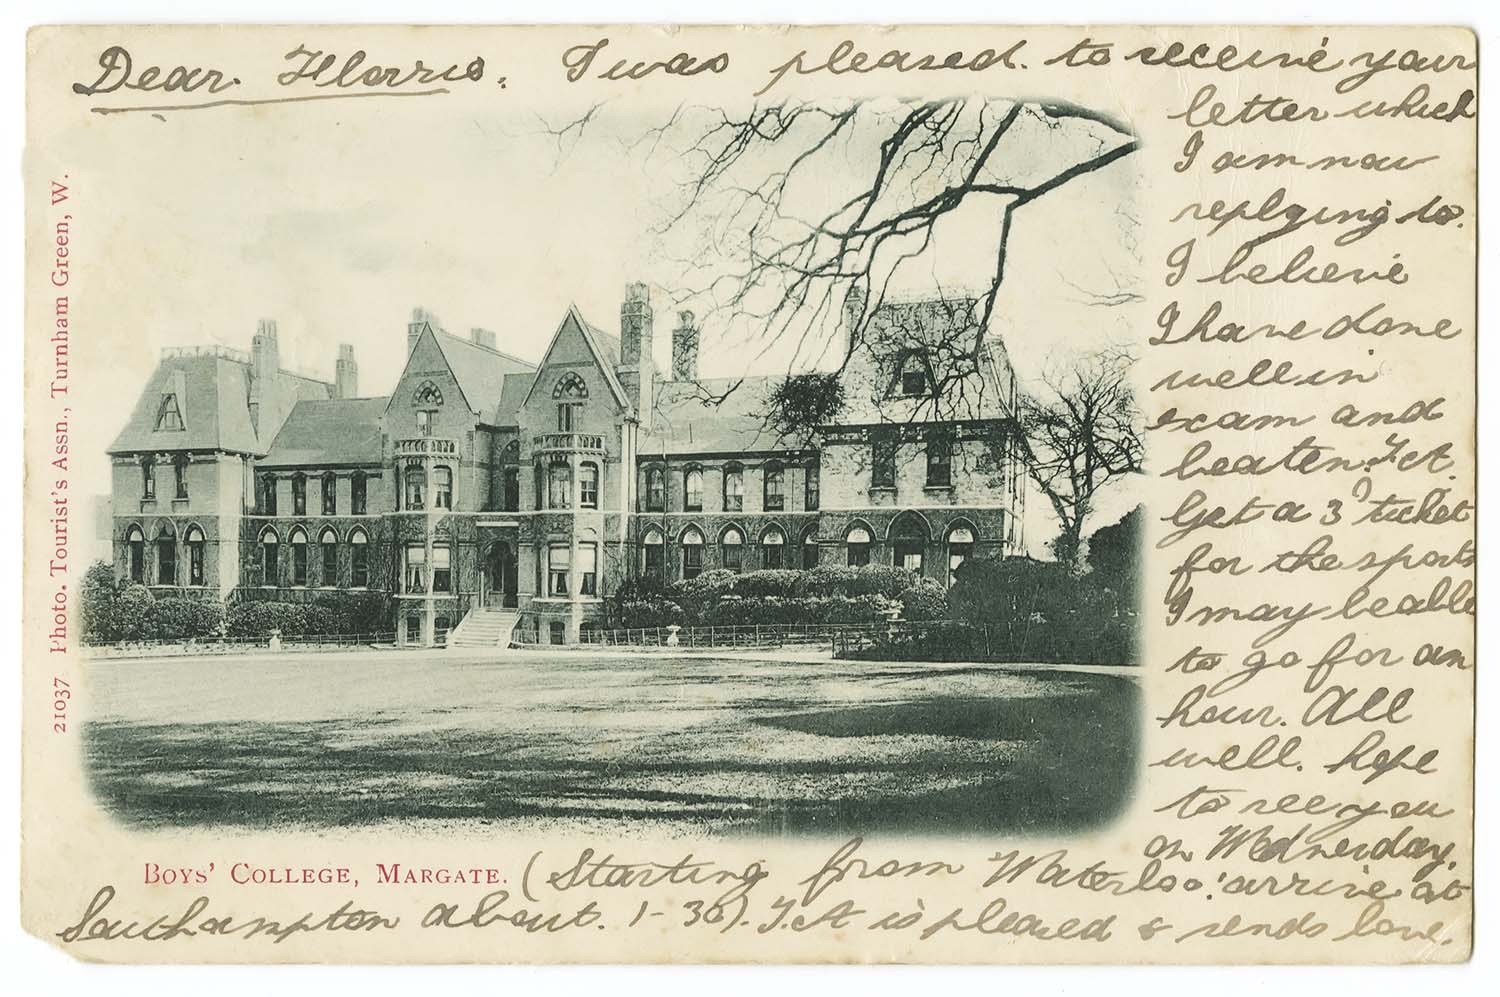 Dear Florrie. I was pleased to receive your
letter which
I am now
replying to.
I believe
I have done
well in
exam and
beaten F.ct.
Get a 3ᵈ ticket
for the sports
I may be able
to go for an
hour. All
well. hope
to see you
on Wednesday.
(Starting from Waterloo: arrive at
Southampton about. 1-30). F.ct is pleased & sends love.
BOYS' COLLEGE, MARGATE.
21037 Photo. Tourist's Assn., Turnham Green, W.